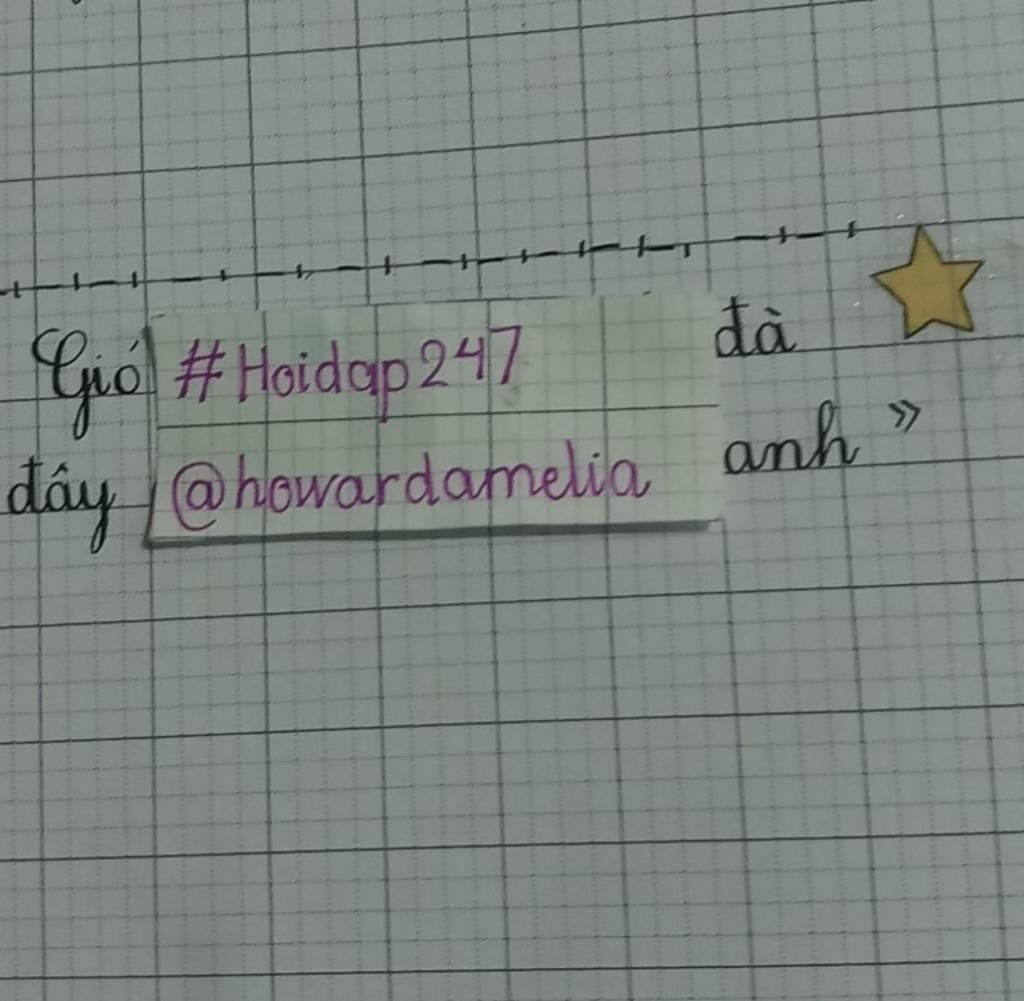 Gió #Hoidap247 đà
đây @howardamelia anh »